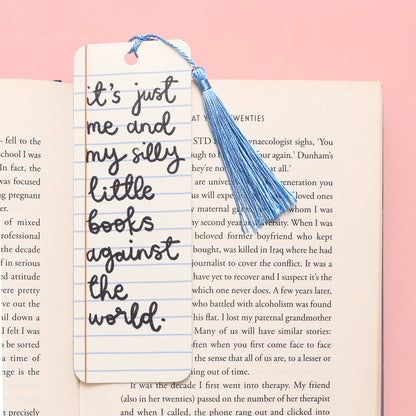 it's just
me and
my silly
little
books
against
the
world.
- fell to the
school I was
In fact, the
was focused
pregnant
ering.
of mixed
rofessional
the decade
f in serious
ed attitude
vere pretty
ve out the
uil down a
I felt I was
to be sorted
a time of
hange is the
precisely
TWENTIES
STD gynaecologist sighs, 'You
ugh to b our again.' Dunham's
they're no at all.'
are univers eneration you
ng a wedding loved ones
y maternal whom I was
my second year a iversity. When I was
beloved former boyfriend who kept
bought, was killed in Iraq where he had
journalist to cover the conflict. It was a
have yet to recover and I suspect it's the
which one never does. A few years later,
who battled with alcoholism was found
his flat. I lost my paternal grandmother
Many of us will have similar stories:
often when you first come face to face
the sense that all of us are, to a lesser or
ning out of time.
It was the decade I first went into therapy. My friend
(also in her twenties) passed on the number of her therapist
and when I called, the phone rang out and clicked into